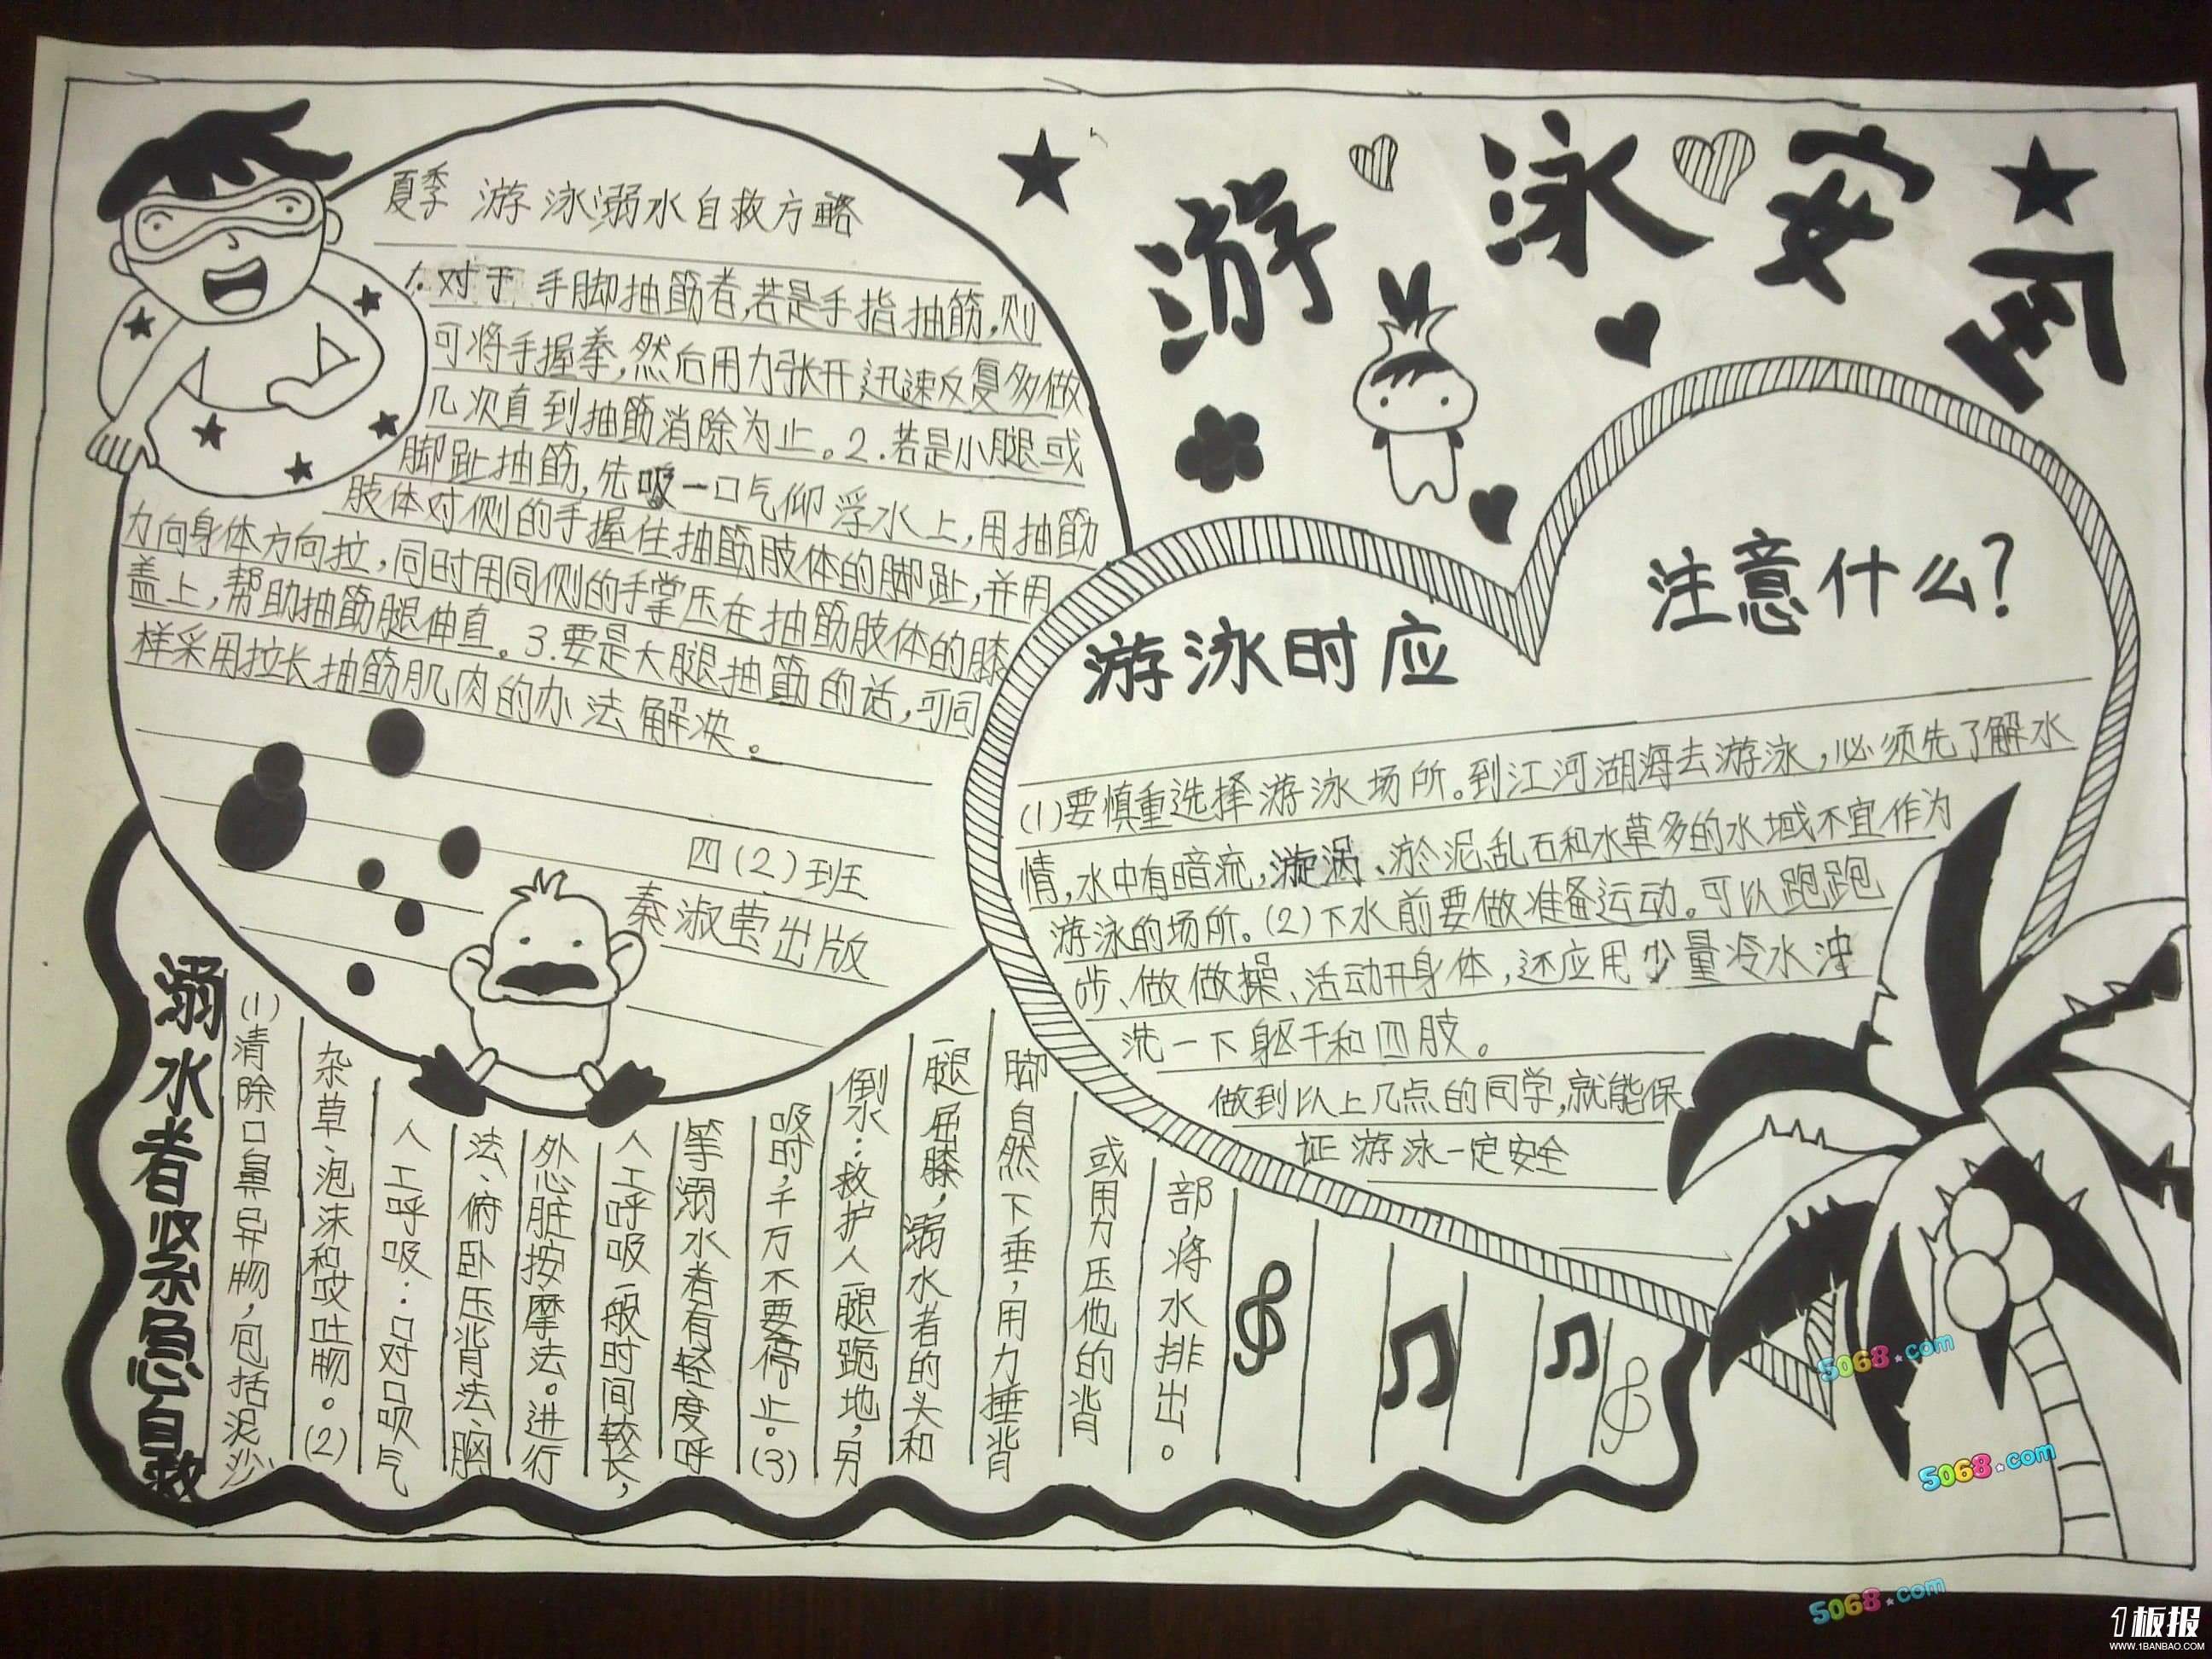 游泳安全
夏季 游泳溺水自救方略
1.对于 手脚抽筋者,若是手指抽筋,则
可将手握拳,然后用力张开,迅速反复多做
几次直到抽筋消除为止。2.若是小腿或
脚趾抽筋,先吸一口气仰浮水上,用抽筋
肢体对侧的手握住抽筋肢体的脚趾,并用
力向身体方向拉,同时用同侧的手掌压在抽筋肢体的膝
盖上,帮助抽筋腿伸直。3.要是大腿抽筋的话,可同
样采用拉长抽筋肌肉的办法解决。
四(2)班
秦淑莹出版
游泳时应
注意什么?
(1)要慎重选择游泳场所。到江河湖海去游泳,必须先了解水
情,水中有暗流,漩涡、淤泥,乱石和水草多的水域不宜作为
游泳的场所。(2)下水前要做准备运动。可以跑跑
步、做做操、活动开身体,还应用少量冷水冲
洗一下躯干和四肢。
做到以上几点的同学,就能保
证游泳一定安全
溺水者紧急自救
(1)清除口鼻异物,包括泥沙、
杂草、泡沫和呕吐物。(2)
人工呼吸:口对口吹气
法、俯卧压背法、胸
外心脏按摩法。进行
人工呼吸一般时间较长,
等溺水者有轻度呼
吸时,千万不要停止。(3)
倒水:救护人一腿跪地,另
一腿屈膝,溺水者的头和
脚自然下垂,用力捶背
或用力压他的背
部,将水排出。
5068.com
5068.com
5068.com
1板报
WWW.1BANBAO.COM